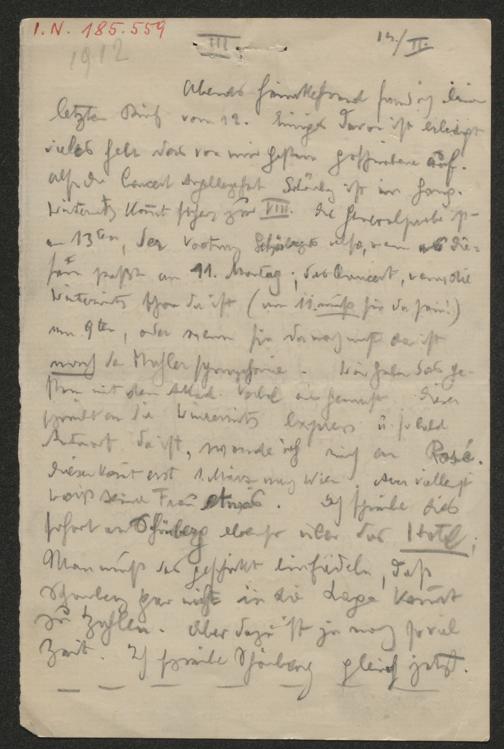 I.N. 185.559
1912
III.
14/II.
Abends heimkehrend fand ich deinen
letzten Brief vom 12. Einiges davon ist erledigt
vieles hebt das von mir gestern geschriebene auf.
also die Concert Angelegenheit Schönberg ist im Gang.
Winternitz kommt schon zur VIII. die Generalprobe ist
am 13ten, der Vortrag Schönbergs also, wenn es die-
sem paßt am 11. Montag; das Concert, wenn die
Winternitz schon da ist (am 11. muß sie da sein!)
am 9ten, oder wenn sie da noch nicht da ist
nach der Mahler Symphonie. Wir haben das ge-
stern mit dem Akad. Verband ausgemacht. Dieser
schreibt an die Winternitz express u. sobald
Antwort da ist, wende ich mich an Rosé.
Dieser kommt erst 1. März nach Wien, aber vielleicht
weiß seine Frau etwas. Ich schreibe dies
sofort an Schönberg ebenso über das Hotel;
Man muß das geschickt einfädeln, daß
Schönberg gar nicht in die Lage kommt
zu zahlen. Aber dazu ist ja noch soviel
Zeit. Ich schreibe Schönberg gleich jetzt.